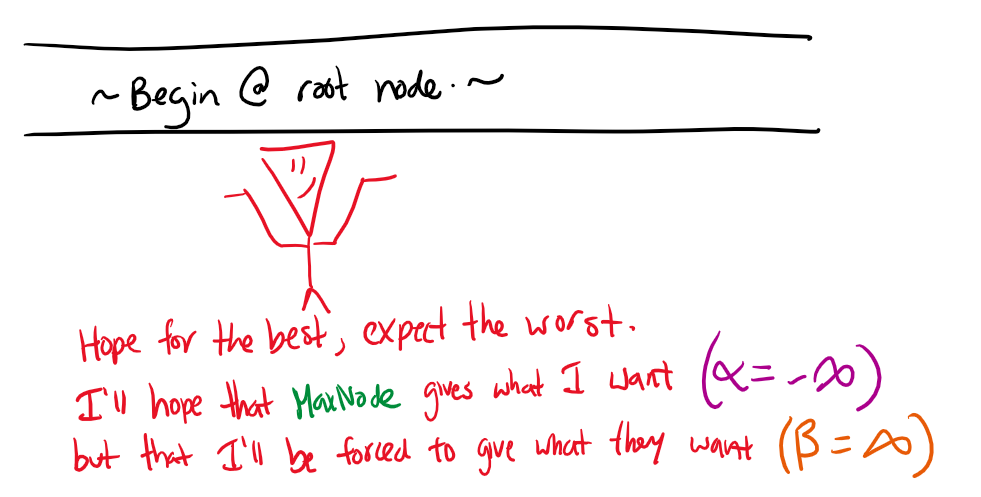 ~Begin @ root node.~
Hope for the best, expect the worst.
I'll hope that MaxNode gives what I want (α = -∞)
but that I'll be forced to give what they want (β = ∞)